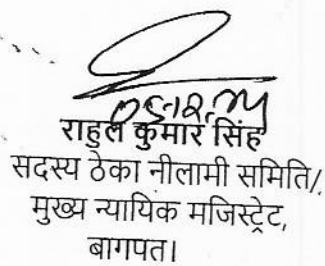 राहुल कुमार सिंह
सदस्य ठेका नीलामी समिति/,
मुख्य न्यायिक मजिस्ट्रेट,
बागपत।